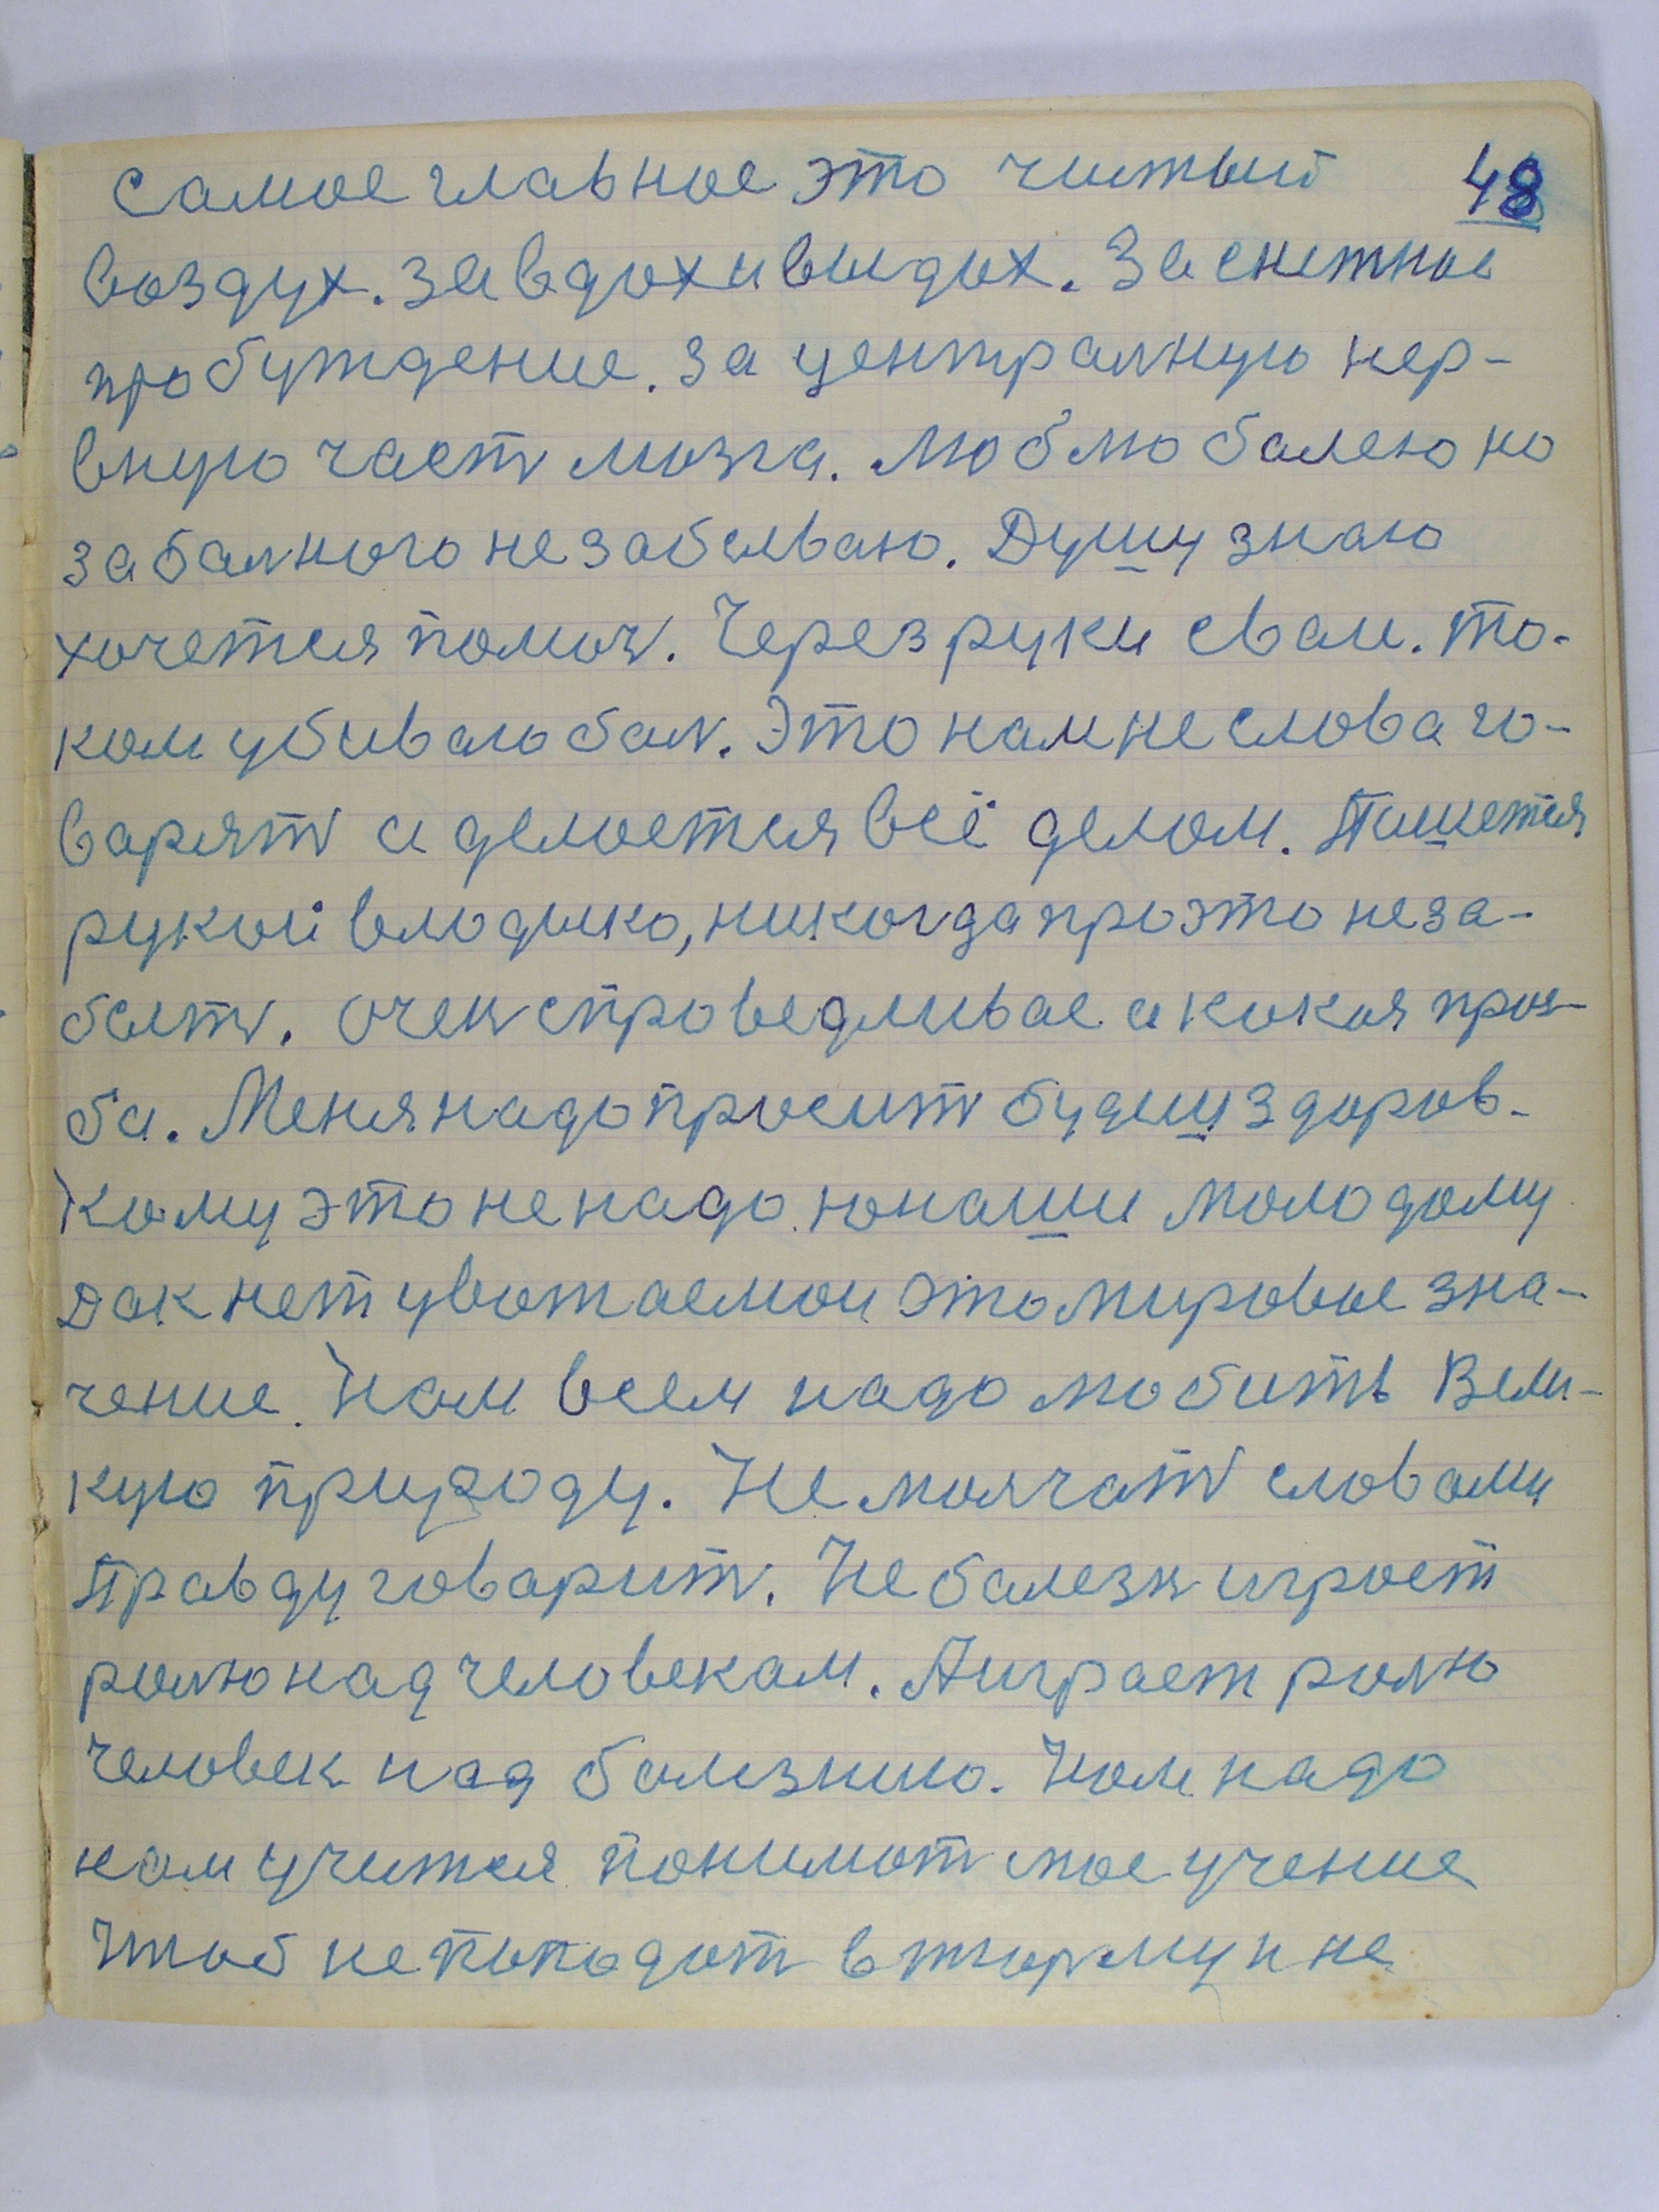 самое главное это чистый 48
воздух. За вдох и выдох. За снежное
пробуждение. За централную нер-
вную част мозга. Люблю балею но
за балного не забываю. Душу знаю
хочется помоч. Через руки сваи. то-
ком убиваю бал. Это нам не слова го-
варят а делоется всё делом. Пишется
рукой влодыко, никогда про это не за-
быт. Очен справедливае а кокоя прос-
ба. Меня надо просит будиш здоров.
Кому это не надо. юнаши молодому
дак нет уважаемои это мировое зна-
чение. Нам всем надо любить Вели-
кую природу. Не молчат словами
Правду говарит. Не балезн игроет
ролю над человекам. А играет ролю
человек над болезнию. Нам надо
нам учится понимат мое учение
Чтоб не попадат в тюрму и не